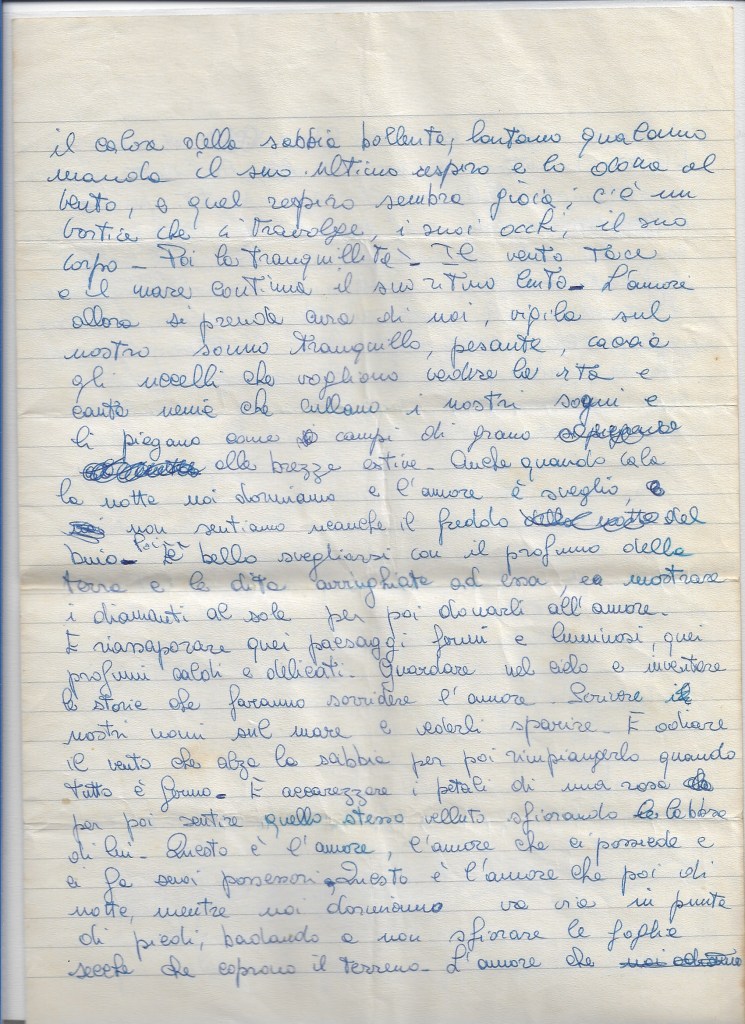 il calore della sabbia bollente, lontano qualcuno
manda il suo ultimo respiro e lo dona al
vento, e quel respiro sembra gioia; c'è un
vortice che ci travolge, i suoi occhi, il suo
corpo - Poi la tranquillità - Il vento tace
e il mare continua il suo ritmo lento - L'amore
allora si prende cura di noi, vigila sul
nostro sonno tranquillo, pesante, caccia
gli uccelli che vogliono vedere la vita e
canta nenie che cullano i nostri sogni e
li piegano come campi di grano
alle brezze estive - Anche quando cala
la notte noi dormiamo e l'amore è sveglio,
non sentiamo neanche il freddo del
buio - Poi è bello svegliarsi con il profumo della
terra e le dita avvinghiate ad essa, e mostrare
i diamanti al sole per poi donarli all'amore.
E riassaporare quei paesaggi fermi e luminosi, quei
profumi caldi e delicati. Guardare nel cielo e inventare
le storie che faranno sorridere l'amore. Scrivere i
nostri nomi sul mare e vederli sparire. È odiare
il vento che alza la sabbia per poi rimpiangerlo quando
tutto è fermo - È accarezzare i petali di una rosa
per poi sentire quello stesso velluto sfiorando le labbra
di lui - Questo è l'amore, l'amore che ci possiede e
ci fa suoi possessori. Questo è l'amore che poi di
notte, mentre noi dormiamo va via in punta
di piedi, badando a non sfiorare le foglie
secche che coprono il terreno - L'amore che